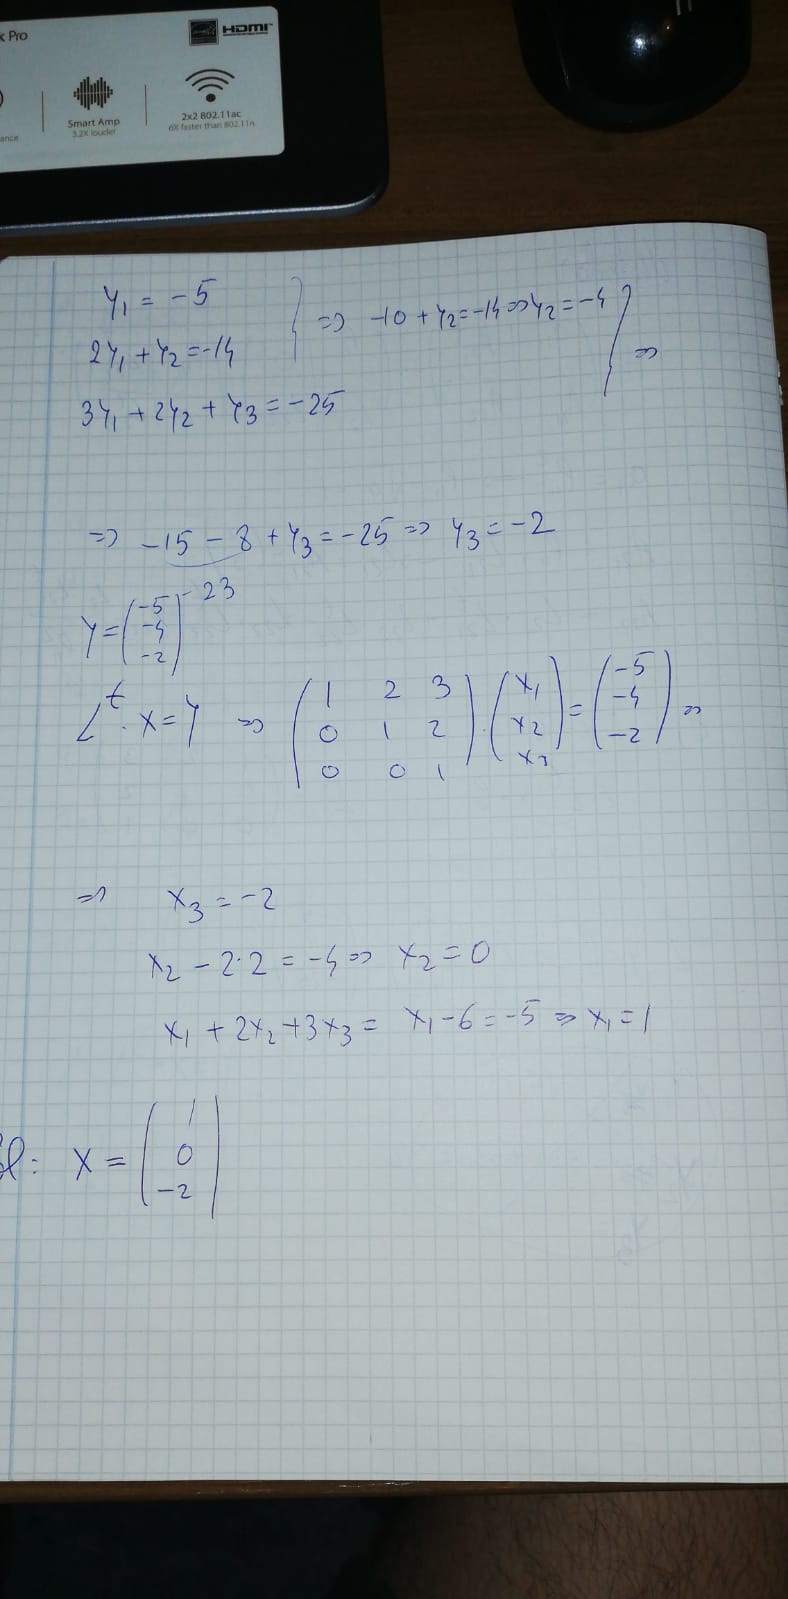 k Pro
HDMI
Smart Amp
3.2X louder
2x2 802.11ac
6X faster than 802.11n
ance
y₁ = -5
2y₁ + y₂ = -14
⇒ -10 + y₂ = -14 ⇒ y₂ = -4
⇒
3y₁ + 2y₂ + y₃ = -25
⇒ -15 - 8 + y₃ = -25 ⇒ y₃ = -2
-23
y = (-5 -4 -2)
Lᵗ · x = y ⇒ (1 2 3 · (x₁ = (-5 ⇒
0 1 2 x₂ -4
0 0 1) x₃) -2)
⇒ x₃ = -2
x₂ - 2·2 = -4 ⇒ x₂ = 0
x₁ + 2x₂ + 3x₃ = x₁ - 6 = -5 ⇒ x₁ = 1
x = (1
0
-2)